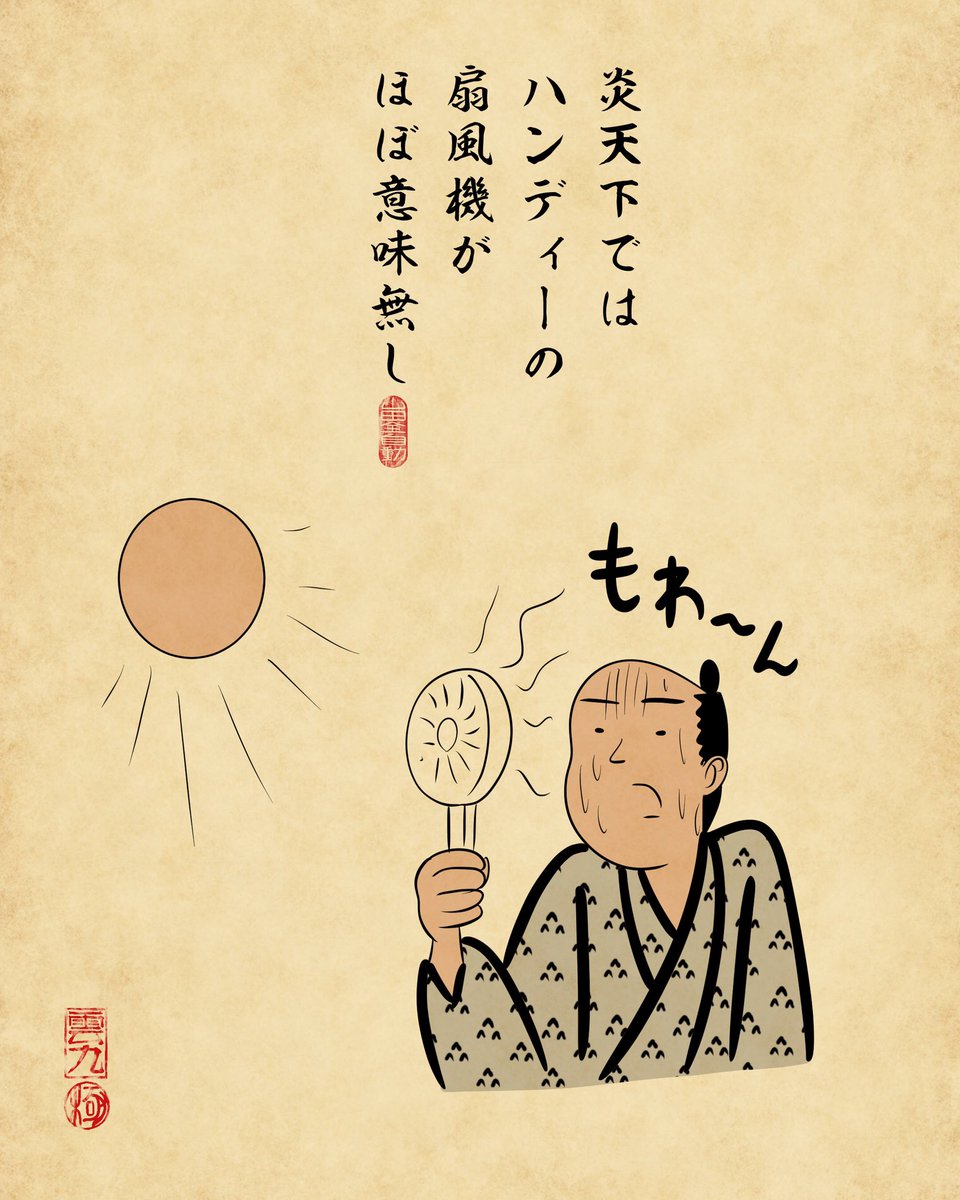 炎天下では
ハンディーの
扇風機が
ほぼ意味無し
もわ〜ん